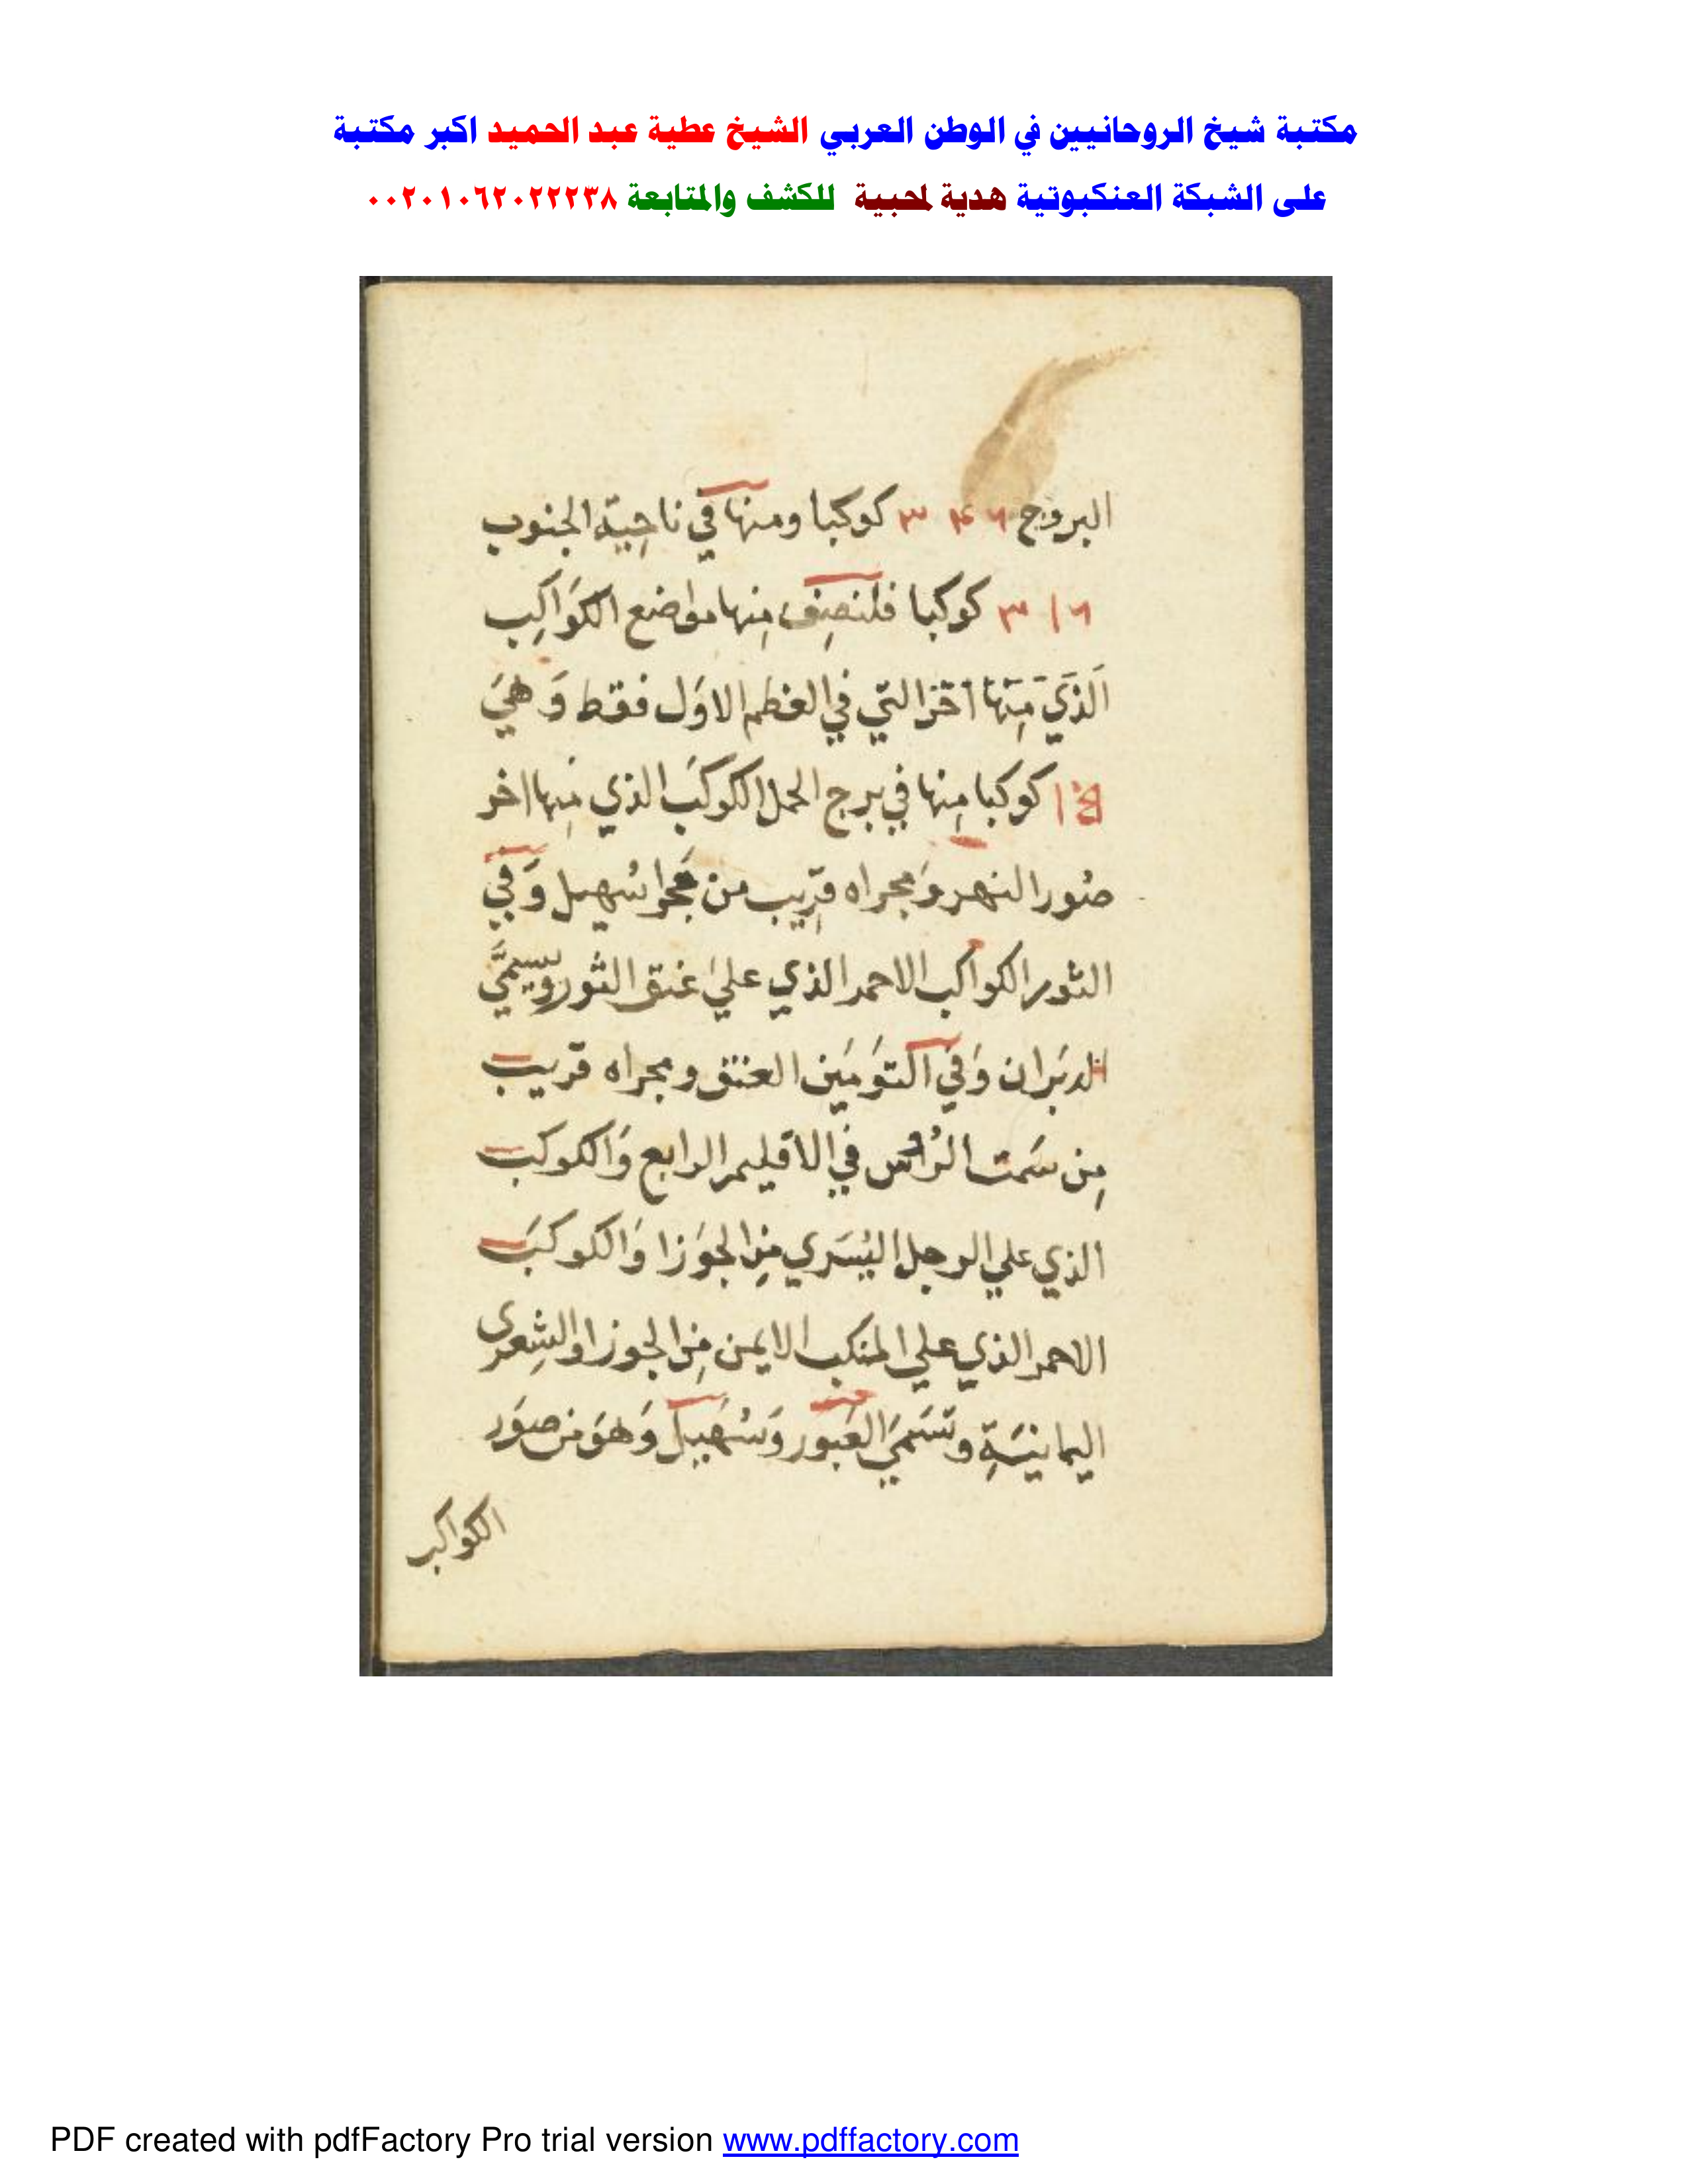 مكتبة شيخ الروحانيين في الوطن العربي الشيخ عطية عبد الحميد اكبر مكتبة
على الشبكة العنكبوتية هدية لمحبيه للكشف والمتابعة ٠٠٢٠١٠٦٢٠٢٢٢٣٨
البروج ٣٤٦ كوكبا ومنها في ناحِية الجنوب
٣١٦ كوكبا فلنصِف مِنها مواضع الكوَاكِب
الذَي مِنها اخر التي في العظم الاوَل فقط وَ هيَ
كوكبا مِنها في برج الحمل الكوكبَ الذي مِنها اخر
صُور النهر وَمجراه قرِيب من مجرا سُهيل وَفي
الثور الكواكب الاحمر الذي علي عنق الثور ويسمَّي
الدبَران وَفي التوَمَين العنتق ومجراه قريب
مِن سَمت الرُاس في الاقليم الرابع وَالكوكب
الذي علي الرجل اليُسَري مِن الجوَزا وَالكوكبَ
الاحمر الذي علي المنكب الايمن مِن الجوزا والشِعرى
اليمانيَةِ وتسَميَ العَبور وَسُهَيل وَهوَ من صوَر
الكواكب
PDF created with pdfFactory Pro trial version www.pdffactory.com